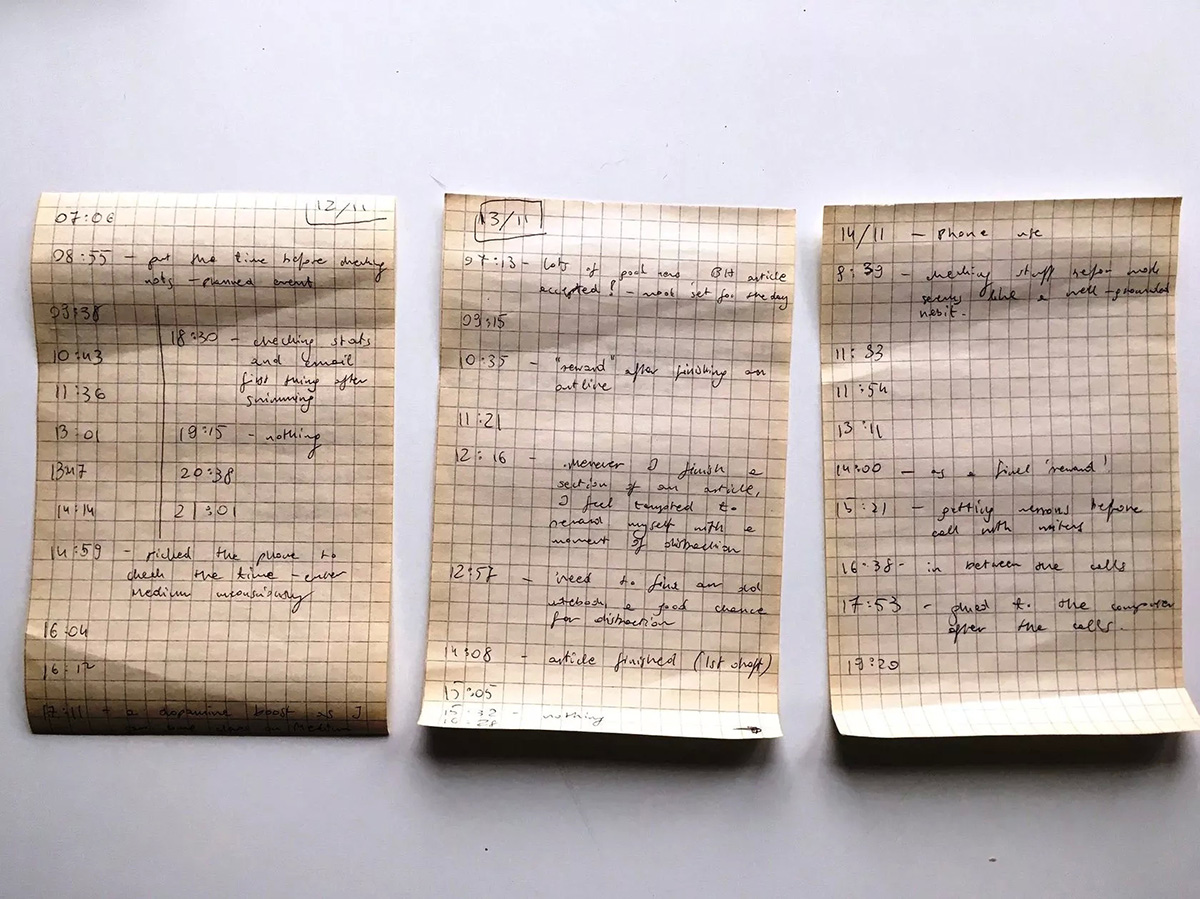 12/11
07:06
08:55 - put the time before checking
nots - planned event
09:38
10:43
11:36
13:01
13:47
14:14
18:30 - checking stats
and email
first thing after
swimming
19:15 - nothing
20:38
21:01
14:59 - picked the phone to
check the time - enter
Medium unconsciously
16:04
16:12
17:11 - a dopamine boost as I
13/11
07:13 - lots of good news BH article
accepted! - mood set for the day
09:15
10:35 - "reward" after finishing an
outline
11:21
12:16 - Whenever I finish a
section of an article,
I feel tempted to
reward myself with a
moment of distraction
12:57 - need to find an old
notebook, a good chance
for distraction
14:08 - article finished (1st draft)
15:05
15:32 - nothing
16:28
14/11 - Phone use
8:39 - checking stuff before work
seems like a well-grounded
habit.
11:33
11:54
13:11
14:00 - as a final 'reward'
15:21 - getting nervous before
call with writers
16:38 - in between the calls
17:53 - glued to the computer
after the calls.
19:20